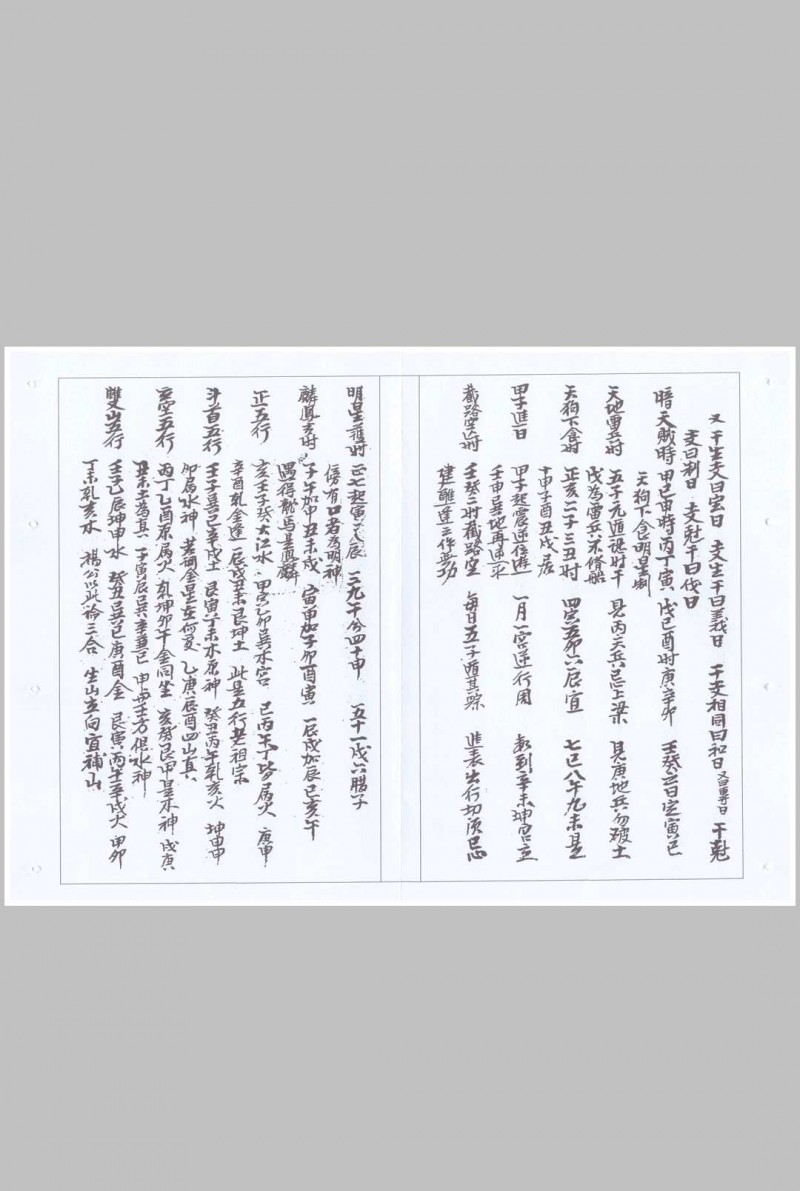 又干生支曰宝日 支生干曰義日 干支相同曰和日 又曰專日 干尅
支曰制日 支尅干曰伐日
暗天賊時 甲己申時丙丁寅 戊己酉时庚辛卯 壬癸 日定寅巳
天狗下食明星制
天地雷兵时 五子元遁認时干 見丙天兵忌上梁 見庚地兵勿破土
戊為雷兵不修船
天狗下食时 正亥二子三丑时 四寅五卯六辰宜 七巳八午九未是
十申子酉丑戌居
甲子進日 甲子起震逆位遊 一月一宮逆行周 数到辛未坤宮立
壬申巽地再還
截路空时 壬癸二时截路空 每日五子遁其踪 進表出行切須忌
建醮逢之作無功
明星 时 正七起寅二八辰 三九午兮四十申 五十一戌六臘子
傍有口者為明神
麟鳳吉时 子午加申丑未戌 寅申加子卯酉寅 辰戌加辰巳亥午
遇得龍馬是真麟
正五行 亥壬子癸大江水 甲寅乙卯巽木宮 巳丙午丁皆属火 庚申
辛酉乾金逢 辰戌丑未艮坤土 此是五行老祖宗
斗首五行 壬子巽己辛戌土 艮寅丁未木原神 癸丑丙午乾亥火 坤申甲
卯属水神 若问金星在何处 乙庚辰酉四山真
玄空五行 丙丁乙酉原属火 乾坤卯午金同坐 亥癸艮甲是木神 戌庚
丑未土為真 子寅辰巽辛兼巳 申与壬方俱水神
雙山五行 壬子乙辰坤申水 癸丑巽巳庚酉金 艮寅丙午辛戌火 甲卯
丁未乾亥木 楊公以此論三合 生山立向宜補山